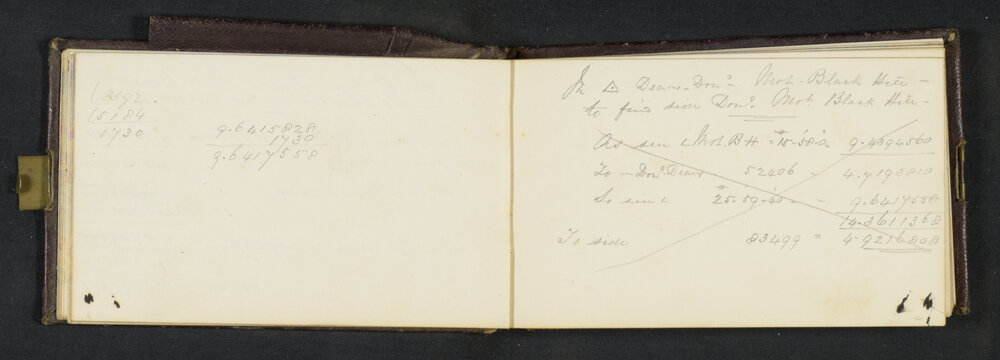 (2592.
(5184
1730
9.6415828.
1730
9.6417558
In △ Deans. Donn. Mot. Black Hill —
to find side Donn. Mot Black Hill —
As sin ∠ Mot. B H = 15°-58'-0" 9.4394560
To — Donn Deans 52406 = 4.7193810
So sin ∠ 25-59-40 = 9.6417558
14.3611368
To side 83499 = 4.9216808